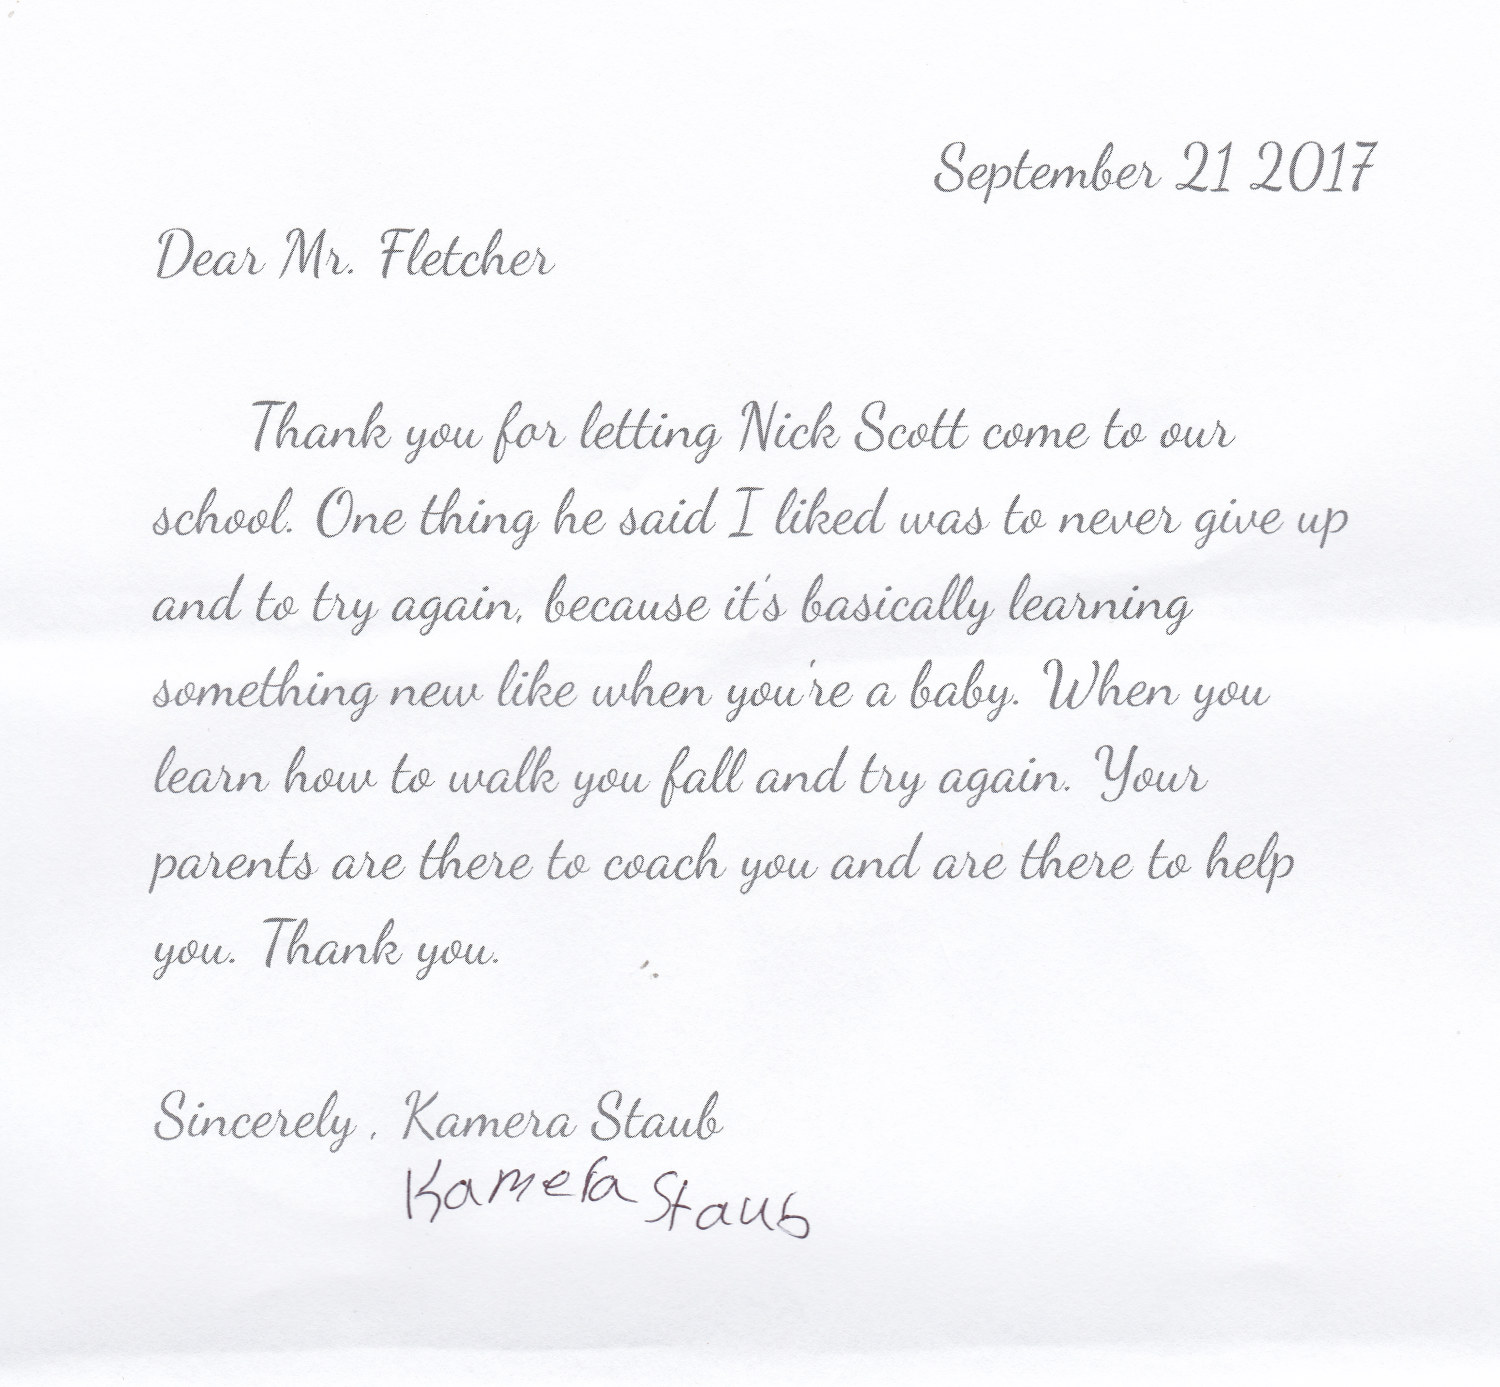 September 21 2017
Dear Mr. Fletcher
Thank you for letting Nick Scott come to our
school. One thing he said I liked was to never give up
and to try again, because it's basically learning
something new like when you're a baby. When you
learn how to walk you fall and try again. Your
parents are there to coach you and are there to help
you. Thank you.
Sincerely , Kamera Staub
Kamera Staub